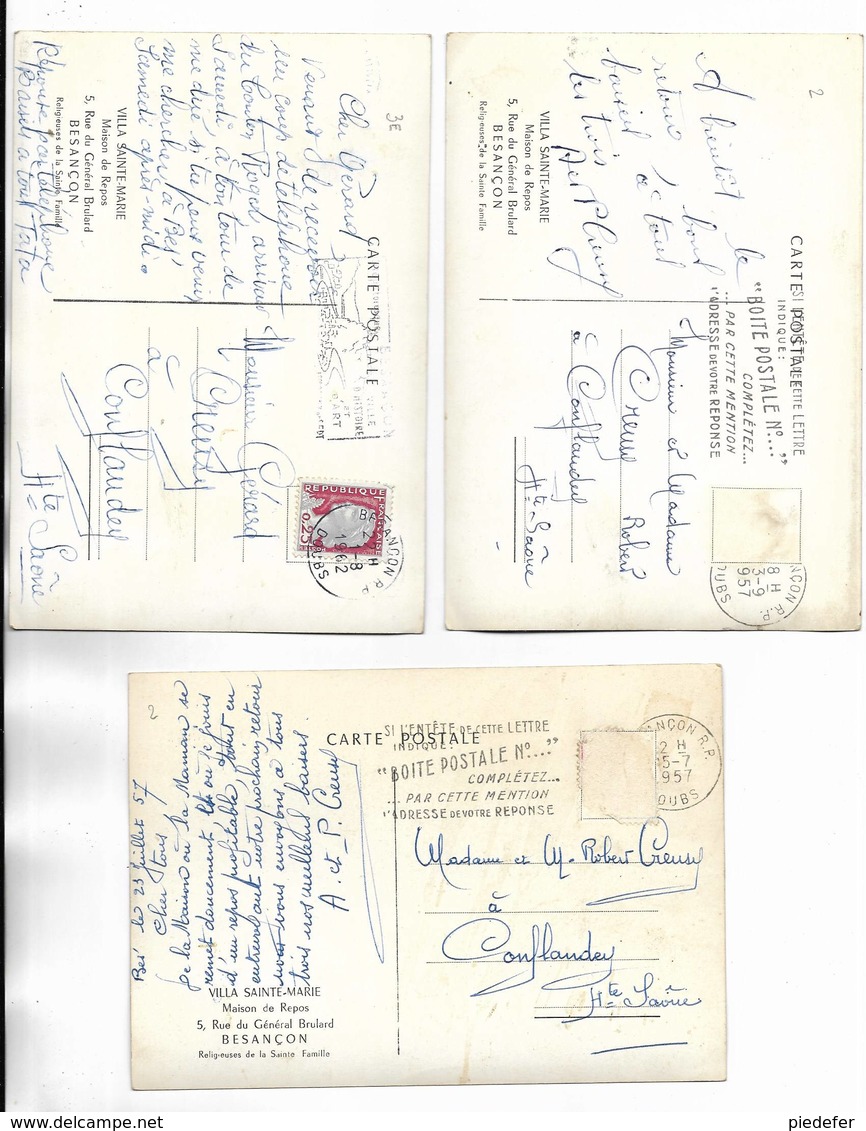 3E
Cher Gérard
Venant de recevoir
un coup de téléphone
du Roger arrivant
Samedi à ton tour de
me dire si tu peux venir
me chercher à Bes'
Samedi après-midi.
Réponse par téléphone
Baisers à tous Tata
VILLA SAINTE-MARIE
Maison de Repos
5, Rue du Général Brulard
BESANÇON
Religieuses de la Sainte Famille
CARTE POSTALE
VILLE
D'HISTOIRE
ET
D'ART
REPUBLIQUE FRANÇAISE
0,25
BESANÇON R.P.
H
1-8
1962
DOUBS
Monsieur Gérard
Creusy
à
Conflandey
Hte Saône
2
A bientôt le
retour, bons
baisers à tous
les trois
A et P Creusy
VILLA SAINTE-MARIE
Maison de Repos
5, Rue du Général Brulard
BESANÇON
Religieuses de la Sainte Famille
CARTE POSTALE
SI L'ENTÊTE DE CETTE LETTRE
INDIQUE:
"BOITE POSTALE N°...."
COMPLÉTEZ...
...PAR CETTE MENTION
L'ADRESSE DE VOTRE REPONSE
ANÇON R.P.
8 H
3-9
957
OUBS
Monsieur et Madame
Creusy Robert
à Conflandey
Hte Saône
2
Bes' le 23 juillet 57
Cher tous!
De la Maison où la Maman se
remet doucement et où je jouis
d'un repos profitable tout en
entrevoyant notre prochain retour
nous vous envoyons à tous
trois nos meilleurs baisers
A. et P. Creusy
VILLA SAINTE-MARIE
Maison de Repos
5, Rue du Général Brulard
BESANÇON
Religieuses de la Sainte Famille
CARTE POSTALE
SI L'ENTÊTE DE CETTE LETTRE
INDIQUE:
"BOITE POSTALE N°...."
COMPLÉTEZ...
...PAR CETTE MENTION
L'ADRESSE DE VOTRE REPONSE
ANÇON R.P.
2 H
5-7
957
OUBS
Madame et M. Robert Creusy
à
Conflandey
Hte Saône
piedefer